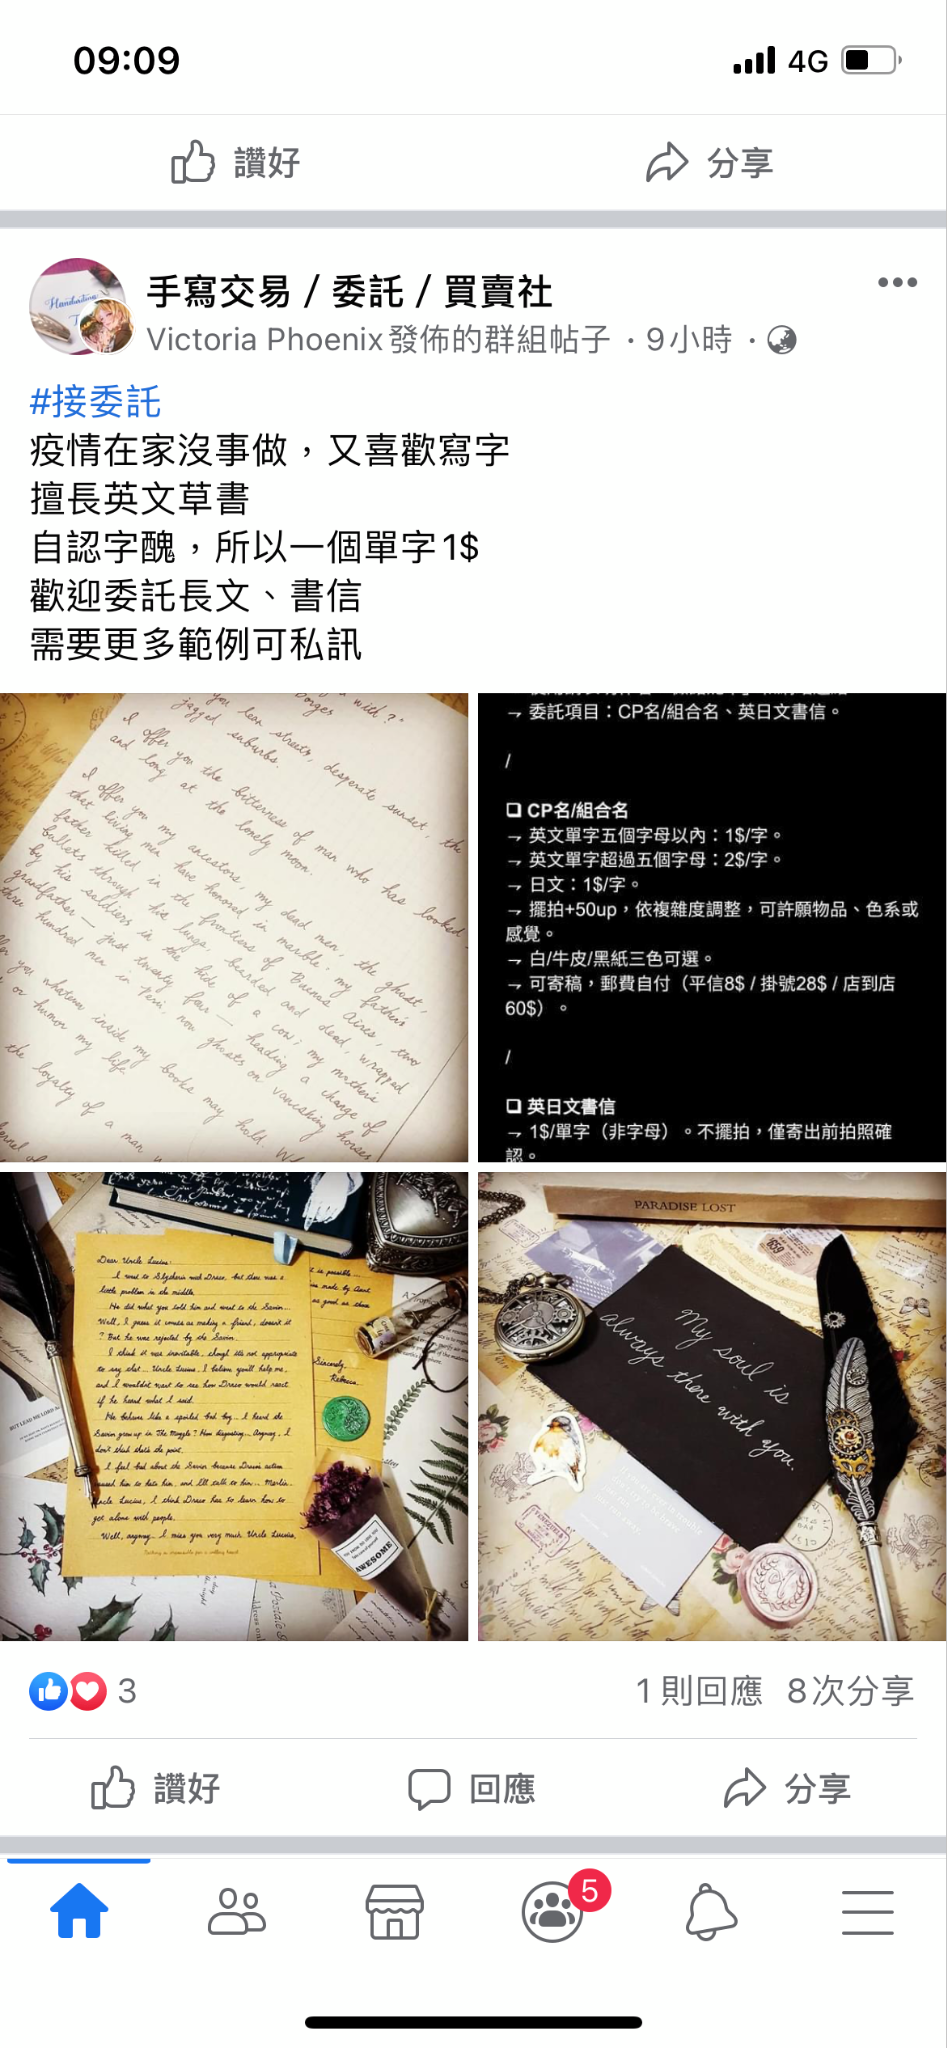 09:09
4G
讚好
分享
手寫交易 / 委託 / 買賣社
Victoria Phoenix發佈的群組帖子 · 9小時 ·
#接委託
疫情在家沒事做，又喜歡寫字
擅長英文草書
自認字醜，所以一個單字1$
歡迎委託長文、書信
需要更多範例可私訊
you lean streets, desperate sunset, the
jagged suburbs.
I offer you the bitterness of man who has looked
and long at the lonely moon.
I offer you my ancestors, my dead men, the ghost,
that living men have honored in marble: my father's
father killed in the frontiers of Buenos Aires, two
bullets through his lungs, bearded and dead, wrapped
by his soldiers in the hide of a cow; my mother's
grandfather — just twenty four — heading a change of
three hundred men in Peru, now ghosts on vanishing horses
you whatever inside my books may hold
or humor my life
the loyalty of a man
→ 委託項目：CP名/組合名、英日文書信。
/
❏ CP名/組合名
→ 英文單字五個字母以內：1$/字。
→ 英文單字超過五個字母：2$/字。
→ 日文：1$/字。
→ 擺拍+50up，依複雜度調整，可許願物品、色系或
感覺。
→ 白/牛皮/黑紙三色可選。
→ 可寄稿，郵費自付（平信8$ / 掛號28$ / 店到店
60$）。
/
❏ 英日文書信
→ 1$/單字（非字母）。不擺拍，僅寄出前拍照確
認。
Dear Uncle Lucius:
I went to Slytherin and Draco, but there was a
little problem in the middle.
He did what you told him and went to the Savior...
Well, I guess it counts as making a friend, doesn't it
? But he was rejected by the Savior.
I think it was inevitable, though it's not appropriate
to say that... Uncle Lucius, I believe you'll help me,
and I wouldn't want to see how Draco would react
if he heard what I said.
He behaves like a spoiled bad boy... I heard the
Savior grew up in The Muggle? How disgusting... Anyway, I
don't think that's the point.
I feel bad about the Savior because Draco's action
caused him to hate him, and I'll talk to him... Merlin.
Uncle Lucius, I think Draco has to learn how to
get along with people.
Well, anyway... I miss you very much Uncle Lucius,
Sincerely,
Rebecca
AWESOME
PARADISE LOST
My soul is
always there with you.
3
1則回應
8次分享
讚好
回應
分享
5